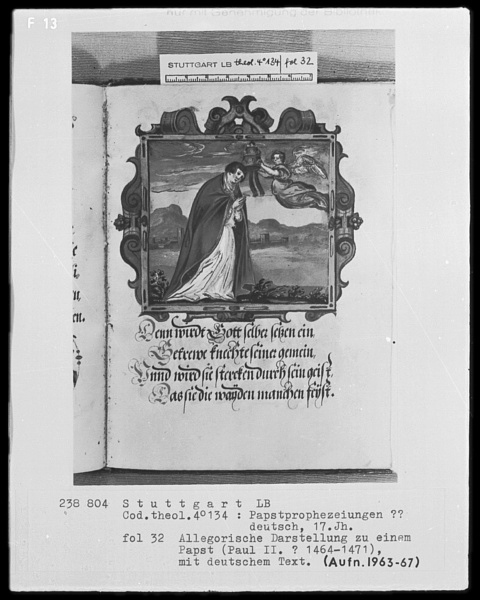 F 13
STUTTGART LB theol. 4° 134 / fol 32
en.
Denn wirdt Gott selber setzen ein
Getrewe knechte seiner gemein,
Vnnd wird sie stercken durch sein geist,
Das sie die wayden manchen feyst.
238 804 Stuttgart LB
Cod.theol.4°134 : Papstprophezeiungen ??
deutsch, 17.Jh.
fol 32 Allegorische Darstellung zu einem
Papst (Paul II. ? 1464-1471),
mit deutschem Text. (Aufn.1963-67)